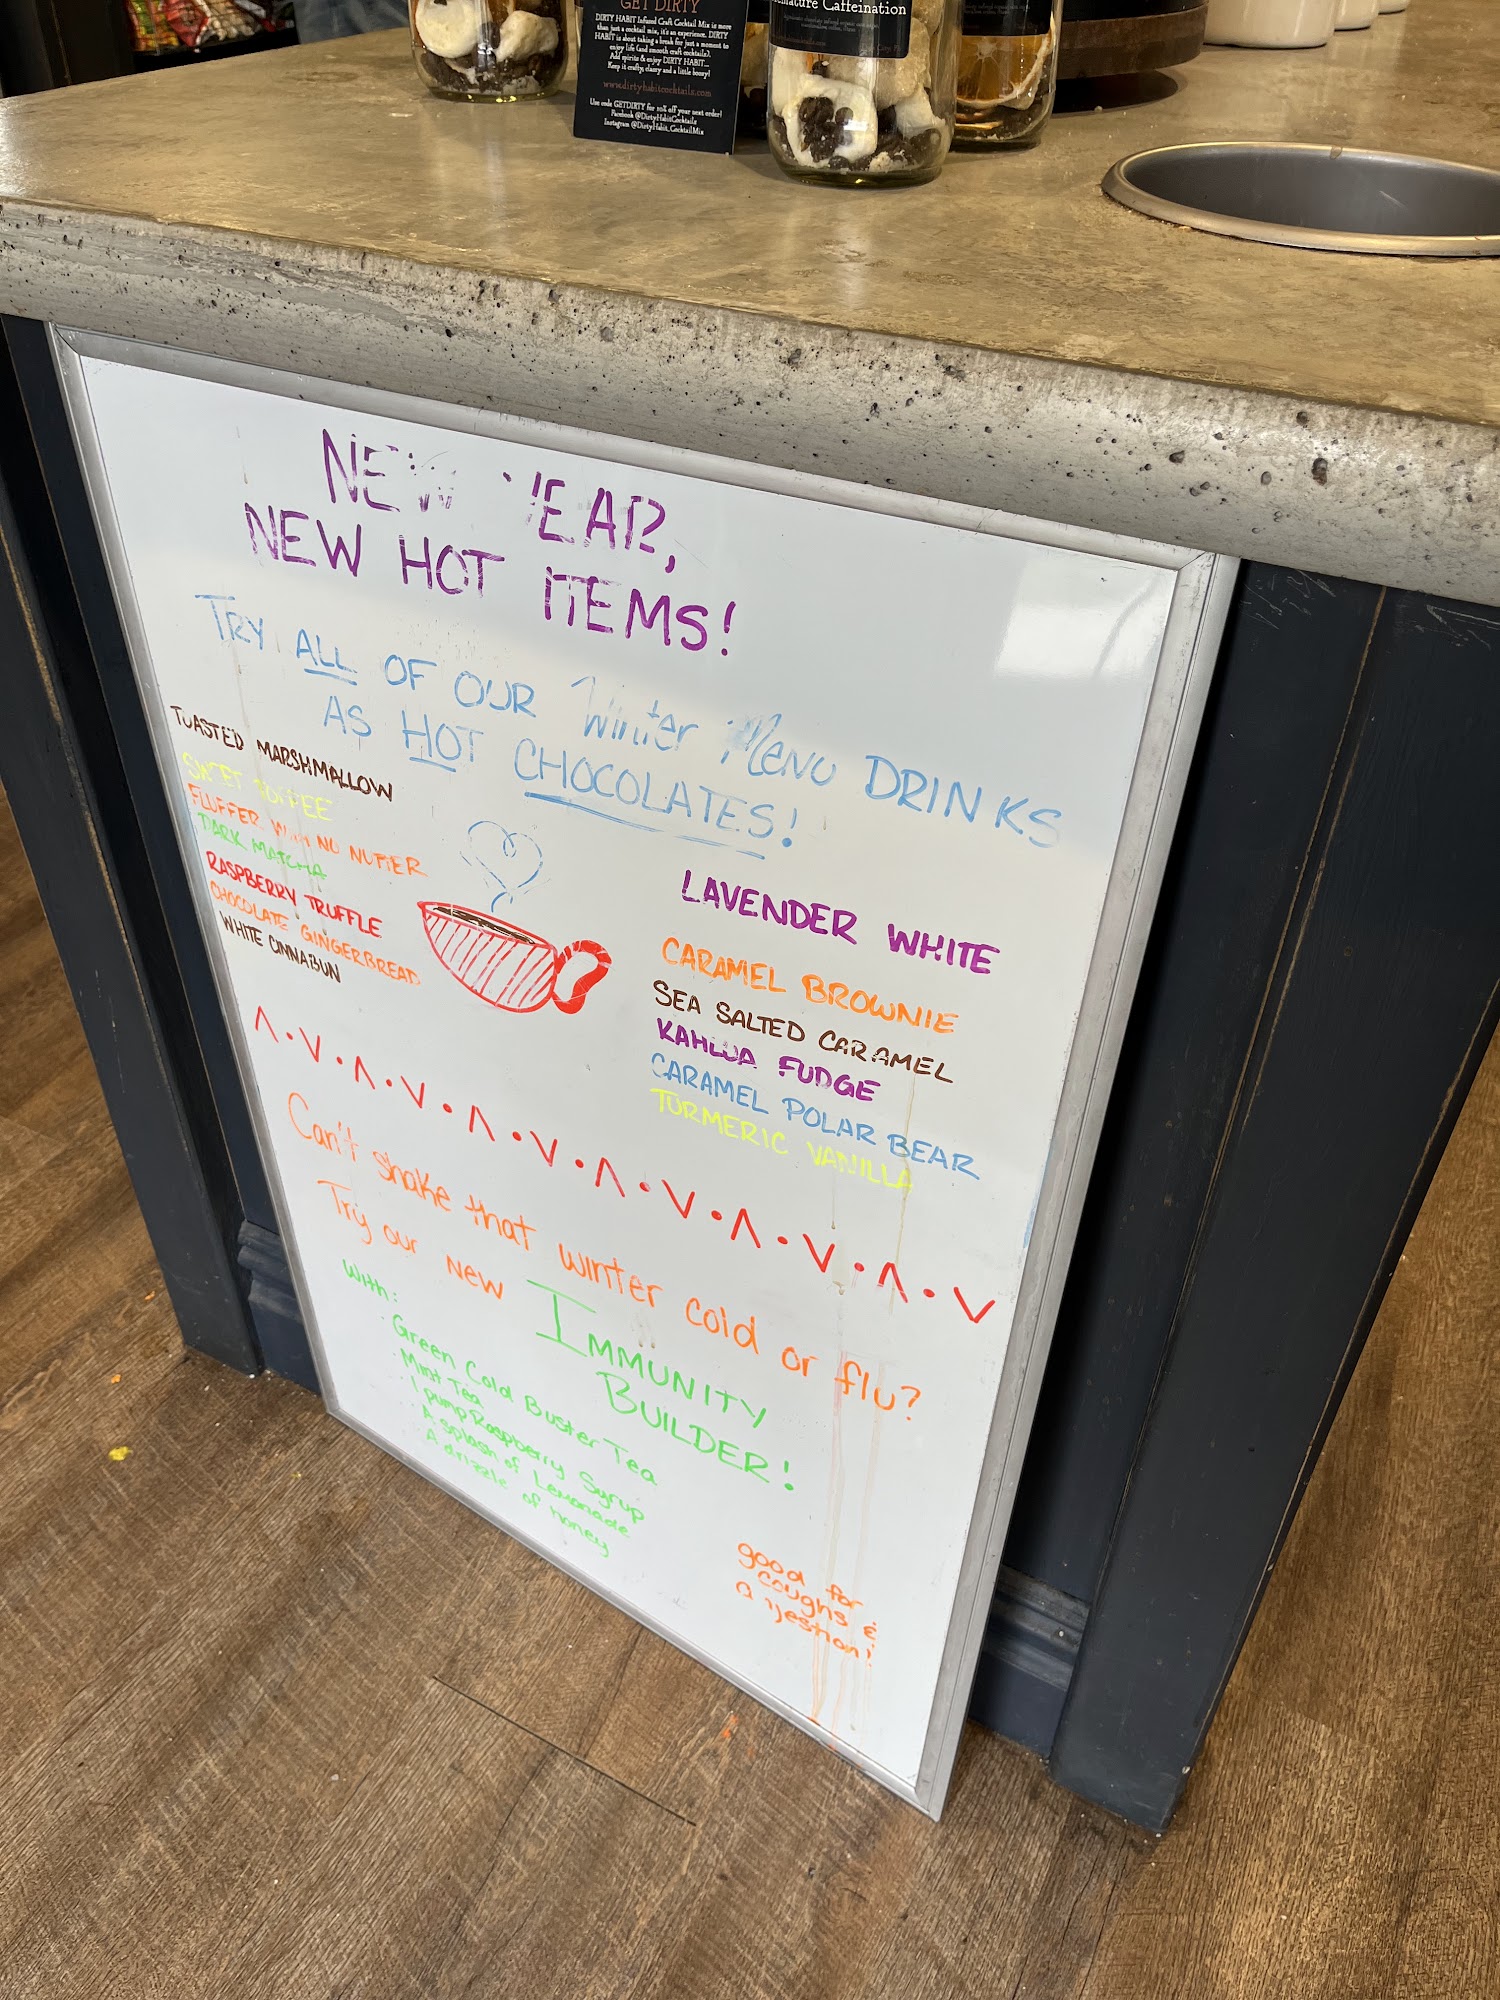 GET DIRTY
DIRTY HABIT Infused Craft Cocktail Mix is more
than just a cocktail mix, it's an experience. DIRTY
HABIT is about taking a break for just a moment to
enjoy life (and smooth craft cocktails).
Add spirits & enjoy DIRTY HABIT...
Keep it crafty, classy and a little boozy!
www.dirtyhabitcocktails.com
Use code GETDIRTY for 10% off your next order!
Facebook @DirtyHabitCocktails
Instagram @DirtyHabit_CocktailMix
Caffeination
NEW YEAR,
NEW HOT ITEMS!
TRY ALL OF OUR Winter Menu DRINKS
AS HOT CHOCOLATES!
TOASTED MARSHMALLOW
SWEET TOFFEE
FLUFFER WITH NO NUTTER
DARK MATCHA
RASPBERRY TRUFFLE
CHOCOLATE GINGERBREAD
WHITE CINNABUN
LAVENDER WHITE
CARAMEL BROWNIE
SEA SALTED CARAMEL
KAHLUA FUDGE
CARAMEL POLAR BEAR
TURMERIC VANILLA
Can't shake that winter cold or flu?
Try our new IMMUNITY
BUILDER!
With:
· Green Cold Buster Tea
· Mint Tea
· 1 pump Raspberry Syrup
· A splash of Lemonade
· A drizzle of honey
good for
coughs &